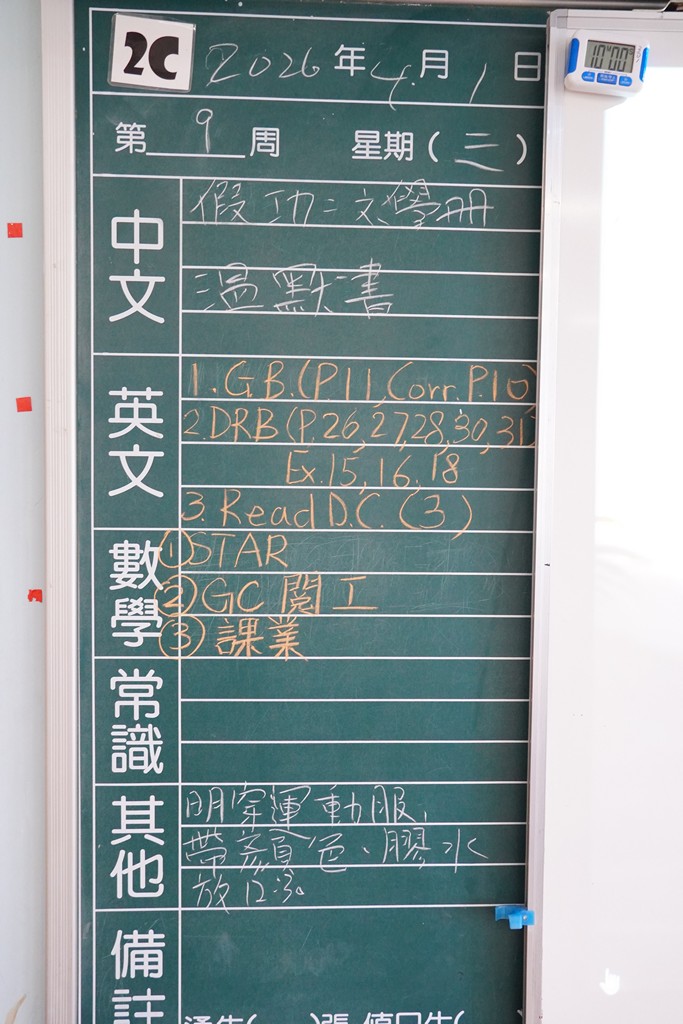 2C 2026年4月1日
第9周 星期(三)
中文
假功:文學册
温默書
英文
1. G.B. (P.11, Corr. P.10)
2. DRB (P.26, 27, 28, 30, 31)
Ex. 15, 16, 18
3. Read D.C. (3)
數學
①STAR
②GC 閲工
③課業
常識
其他
明穿運動服,
帶顏色、膠水
放
備註
張
10:00